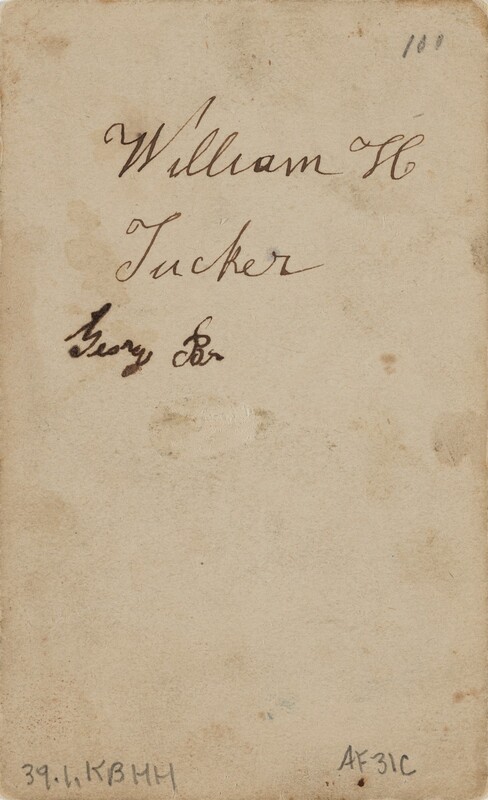 100
William H
Tucker
Georg Par
39.1.KBHH
AF31C